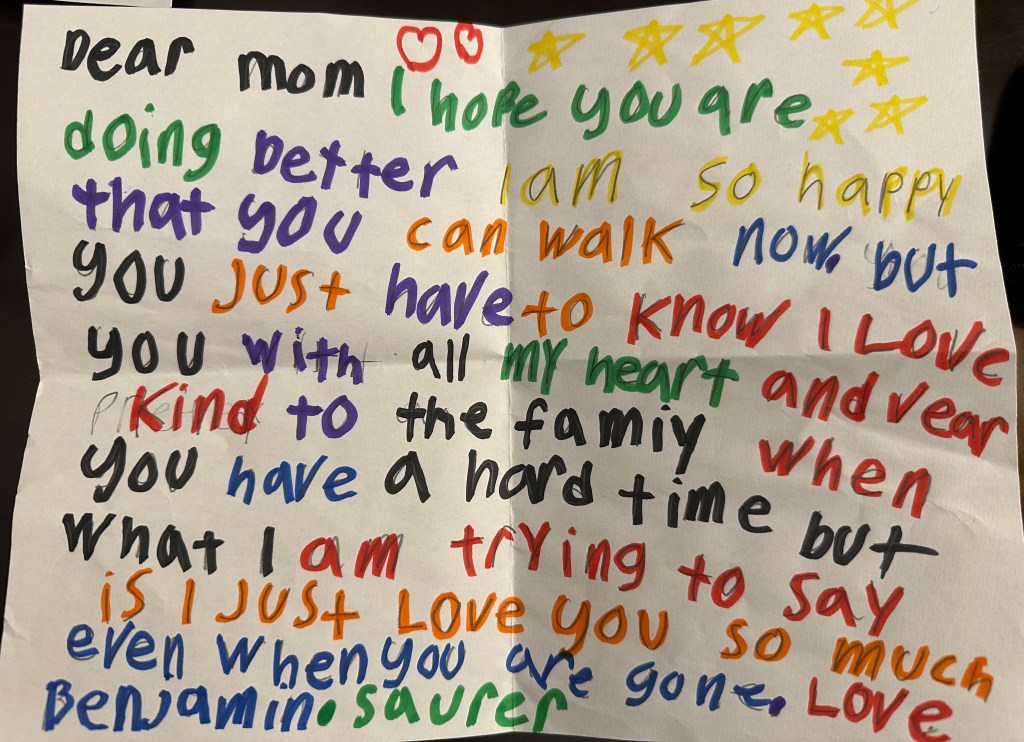 Dear mom I hope you are
doing better I am so happy
that you can walk now. but
you just have to know I Love
you with all my heart and vear
kind to the famiy when
you have a hard time but
what I am trying to say
is I Just Love you so much
even when you are gone. Love
Benjamin. saurer